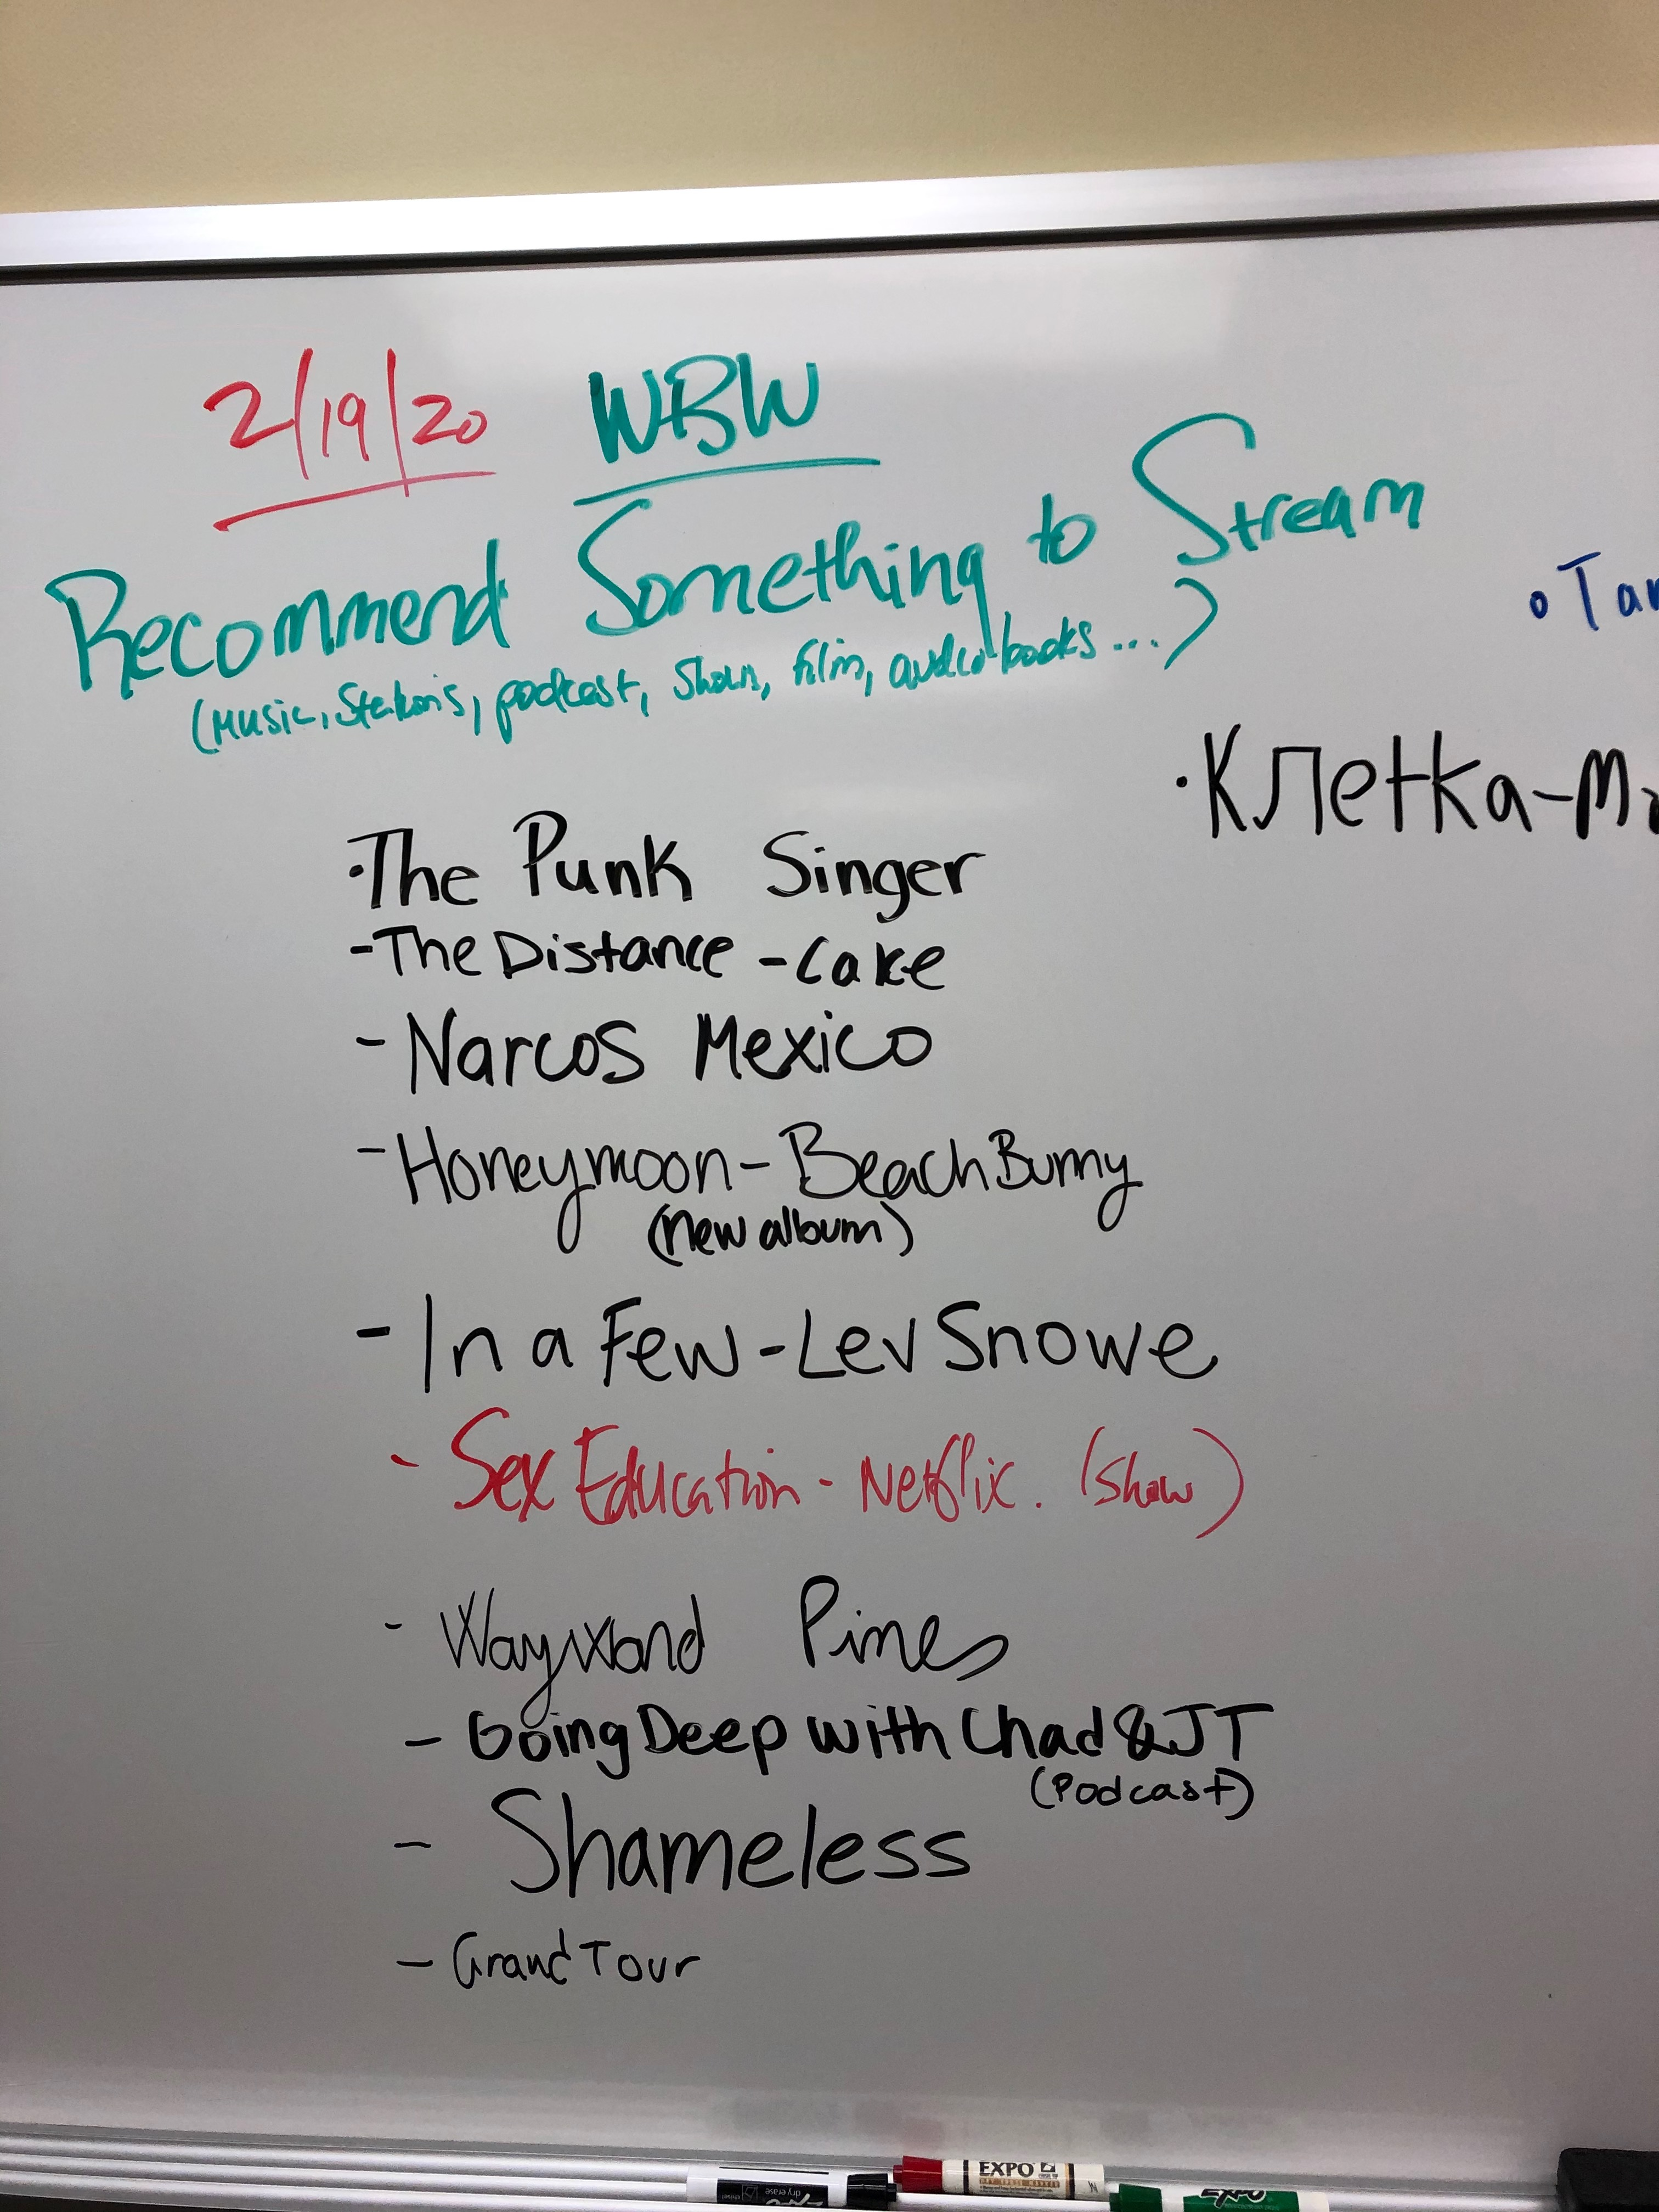 2/19/20 WBW
Recommend Something to Stream
(Music, Stations, podcast, Shows, film, audiobooks...)
• Tar
• Клетка-М
• The Punk Singer
- The Distance - Cake
- Narcos Mexico
- Honeymoon - Beach Bunny
(new album)
- In a Few - Lev Snowe
- Sex Education - Netflix. (Show)
- Wayward Pines
- Going Deep with Chad & JT
(Podcast)
- Shameless
- Grand Tour
EXPO
dry erase
EXPO
EXPO